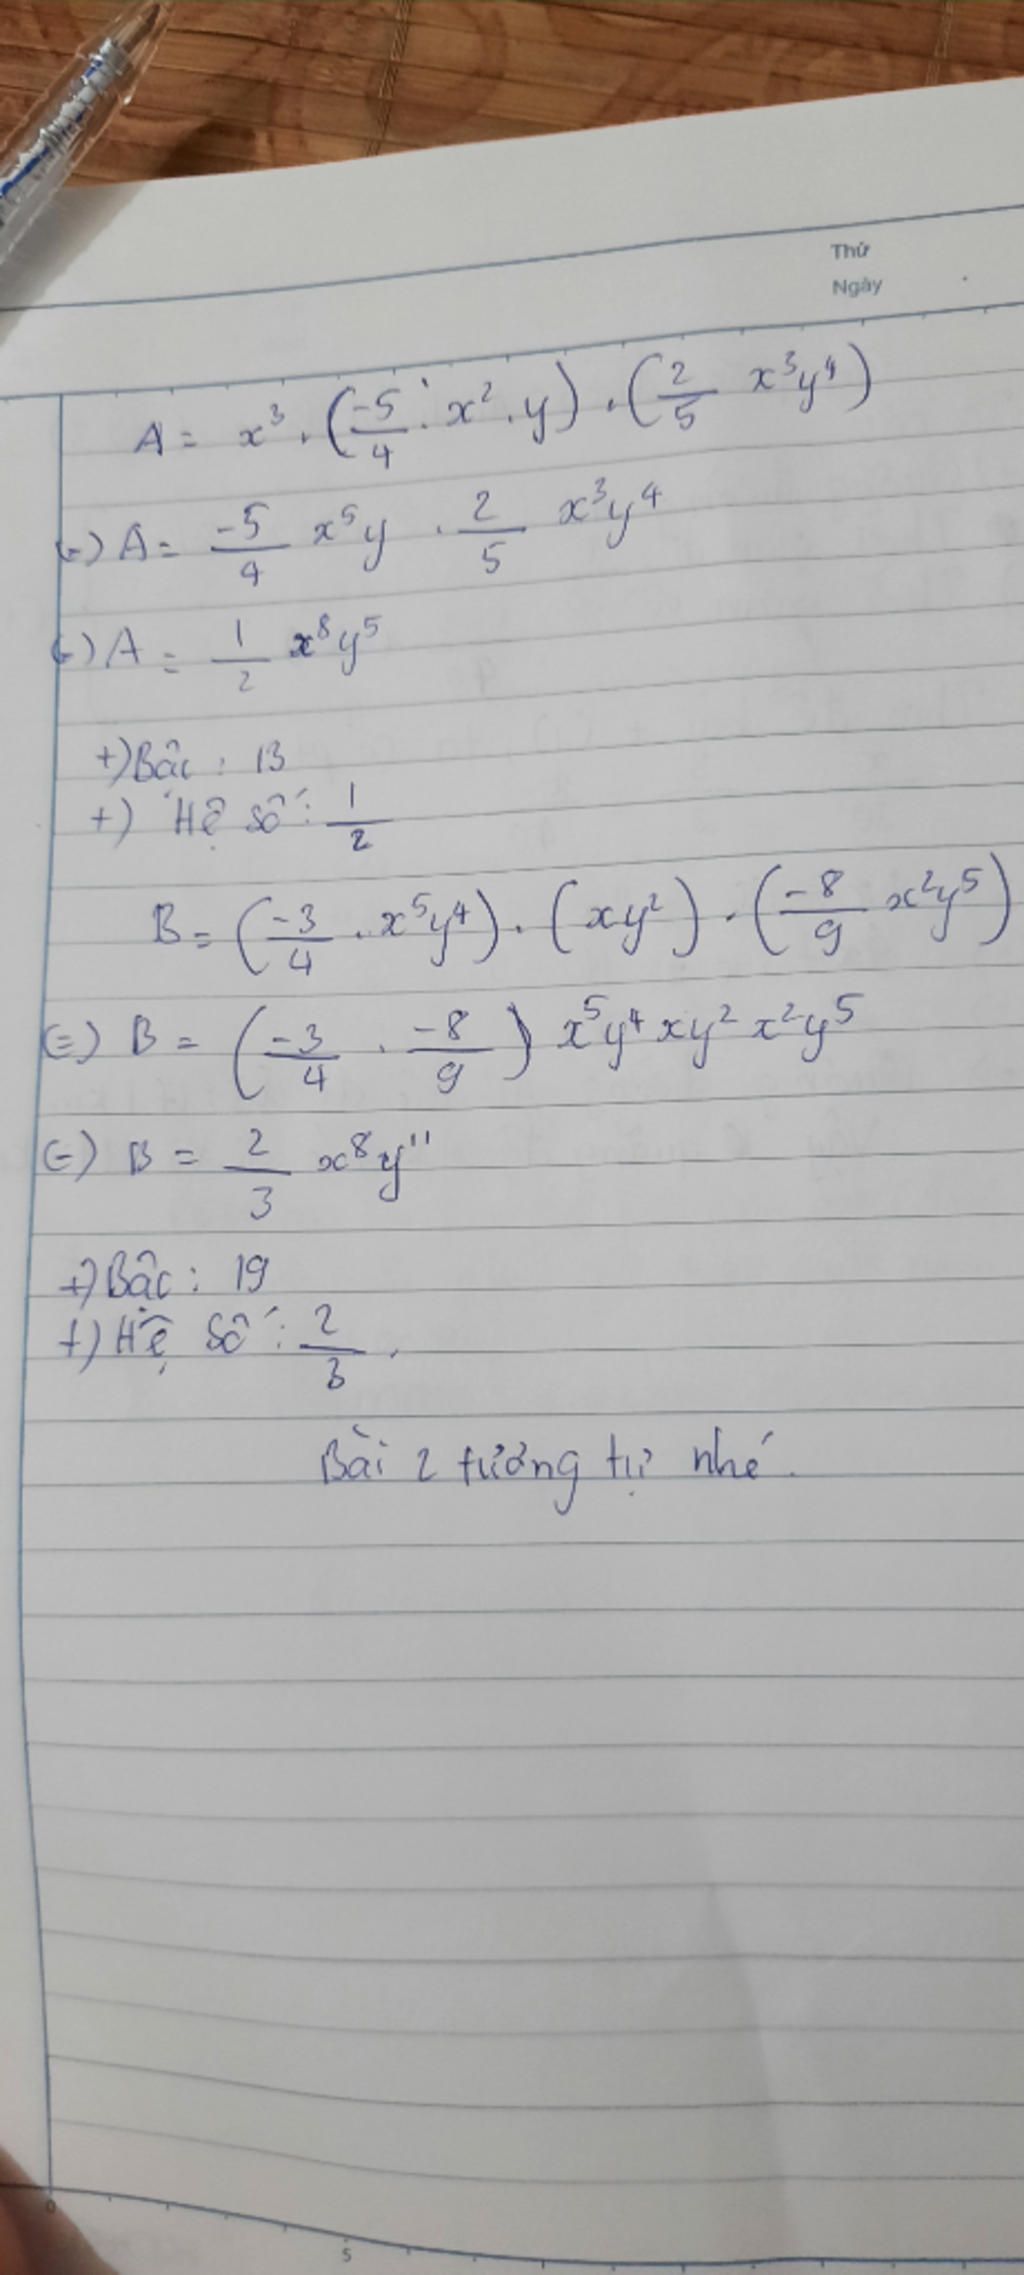 Thứ
Ngày
A = x³ . (-5/4 . x² . y) . (2/5 x³y⁴)
(=) A = -5/4 x⁵y . 2/5 x³y⁴
(=) A = 1/2 x⁸y⁵
+) Bậc : 13
+) Hệ số : 1/2
B = (-3/4 . x⁵y⁴) . (xy²) . (-8/9 x²y⁵)
(=) B = (-3/4 . -8/9) x⁵y⁴xy²x²y⁵
(=) B = 2/3 x⁸y¹¹
+) Bậc : 19
+) Hệ số : 2/3 .
Bài 2 tương tự nhé.
0
5